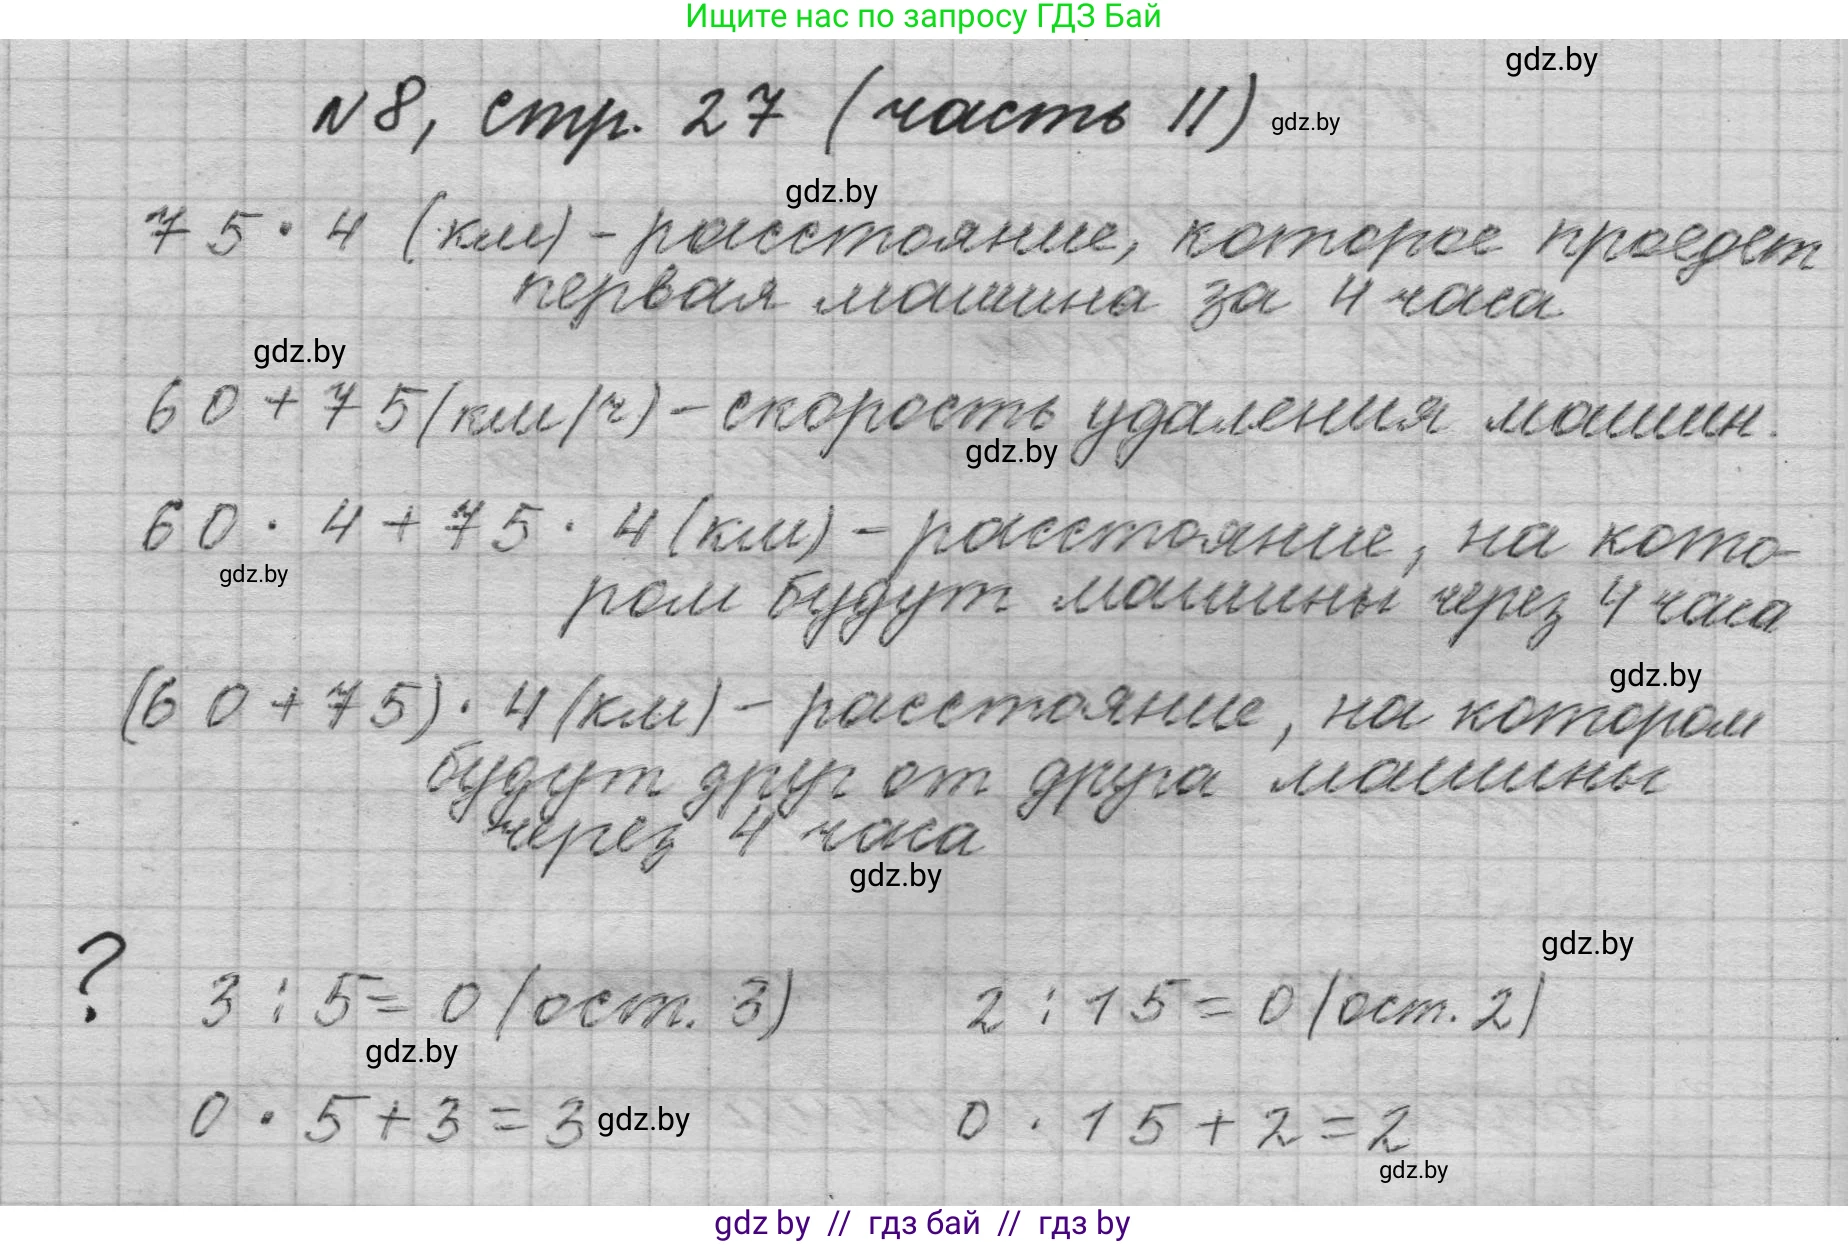 Ищите нас по запросу ГДЗ Бай
gdz.by
№8, стр. 27 (часть II) gdz.by
gdz.by
75 · 4 (км) – расстояние, которое проедет
первая машина за 4 часа
gdz.by
60 + 75 (км/ч) – скорость удаления машин.
gdz.by
60 · 4 + 75 · 4 (км) – расстояние, на кото-
gdz.by
ром будут машины через 4 часа
gdz.by
(60 + 75) · 4 (км) – расстояние, на котором
будут друг от друга машины
через 4 часа
gdz.by
gdz.by
? 3 : 5 = 0 (ост. 3) 2 : 15 = 0 (ост. 2)
gdz.by
0 · 5 + 3 = 3 gdz.by 0 · 15 + 2 = 2
gdz.by
gdz by // гдз бай // гдз by